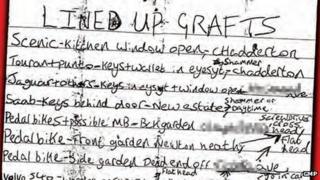 LINED UP GRAFTS
Scenic-Kitchen window open-Chadderton
Shammer
Touran+punto-Keys+wallet in eyesyt-chadderton
Jaguar+others-Keys in eysyt+window open
Shammer or
Saab-Keys behind door-New estate Daytime
Pedal bikes+possible MB-Bck garden
head
Pedal bike-front garden Newton heath
Flat head
Pedal bike-Side garden Dead end off
Flat head